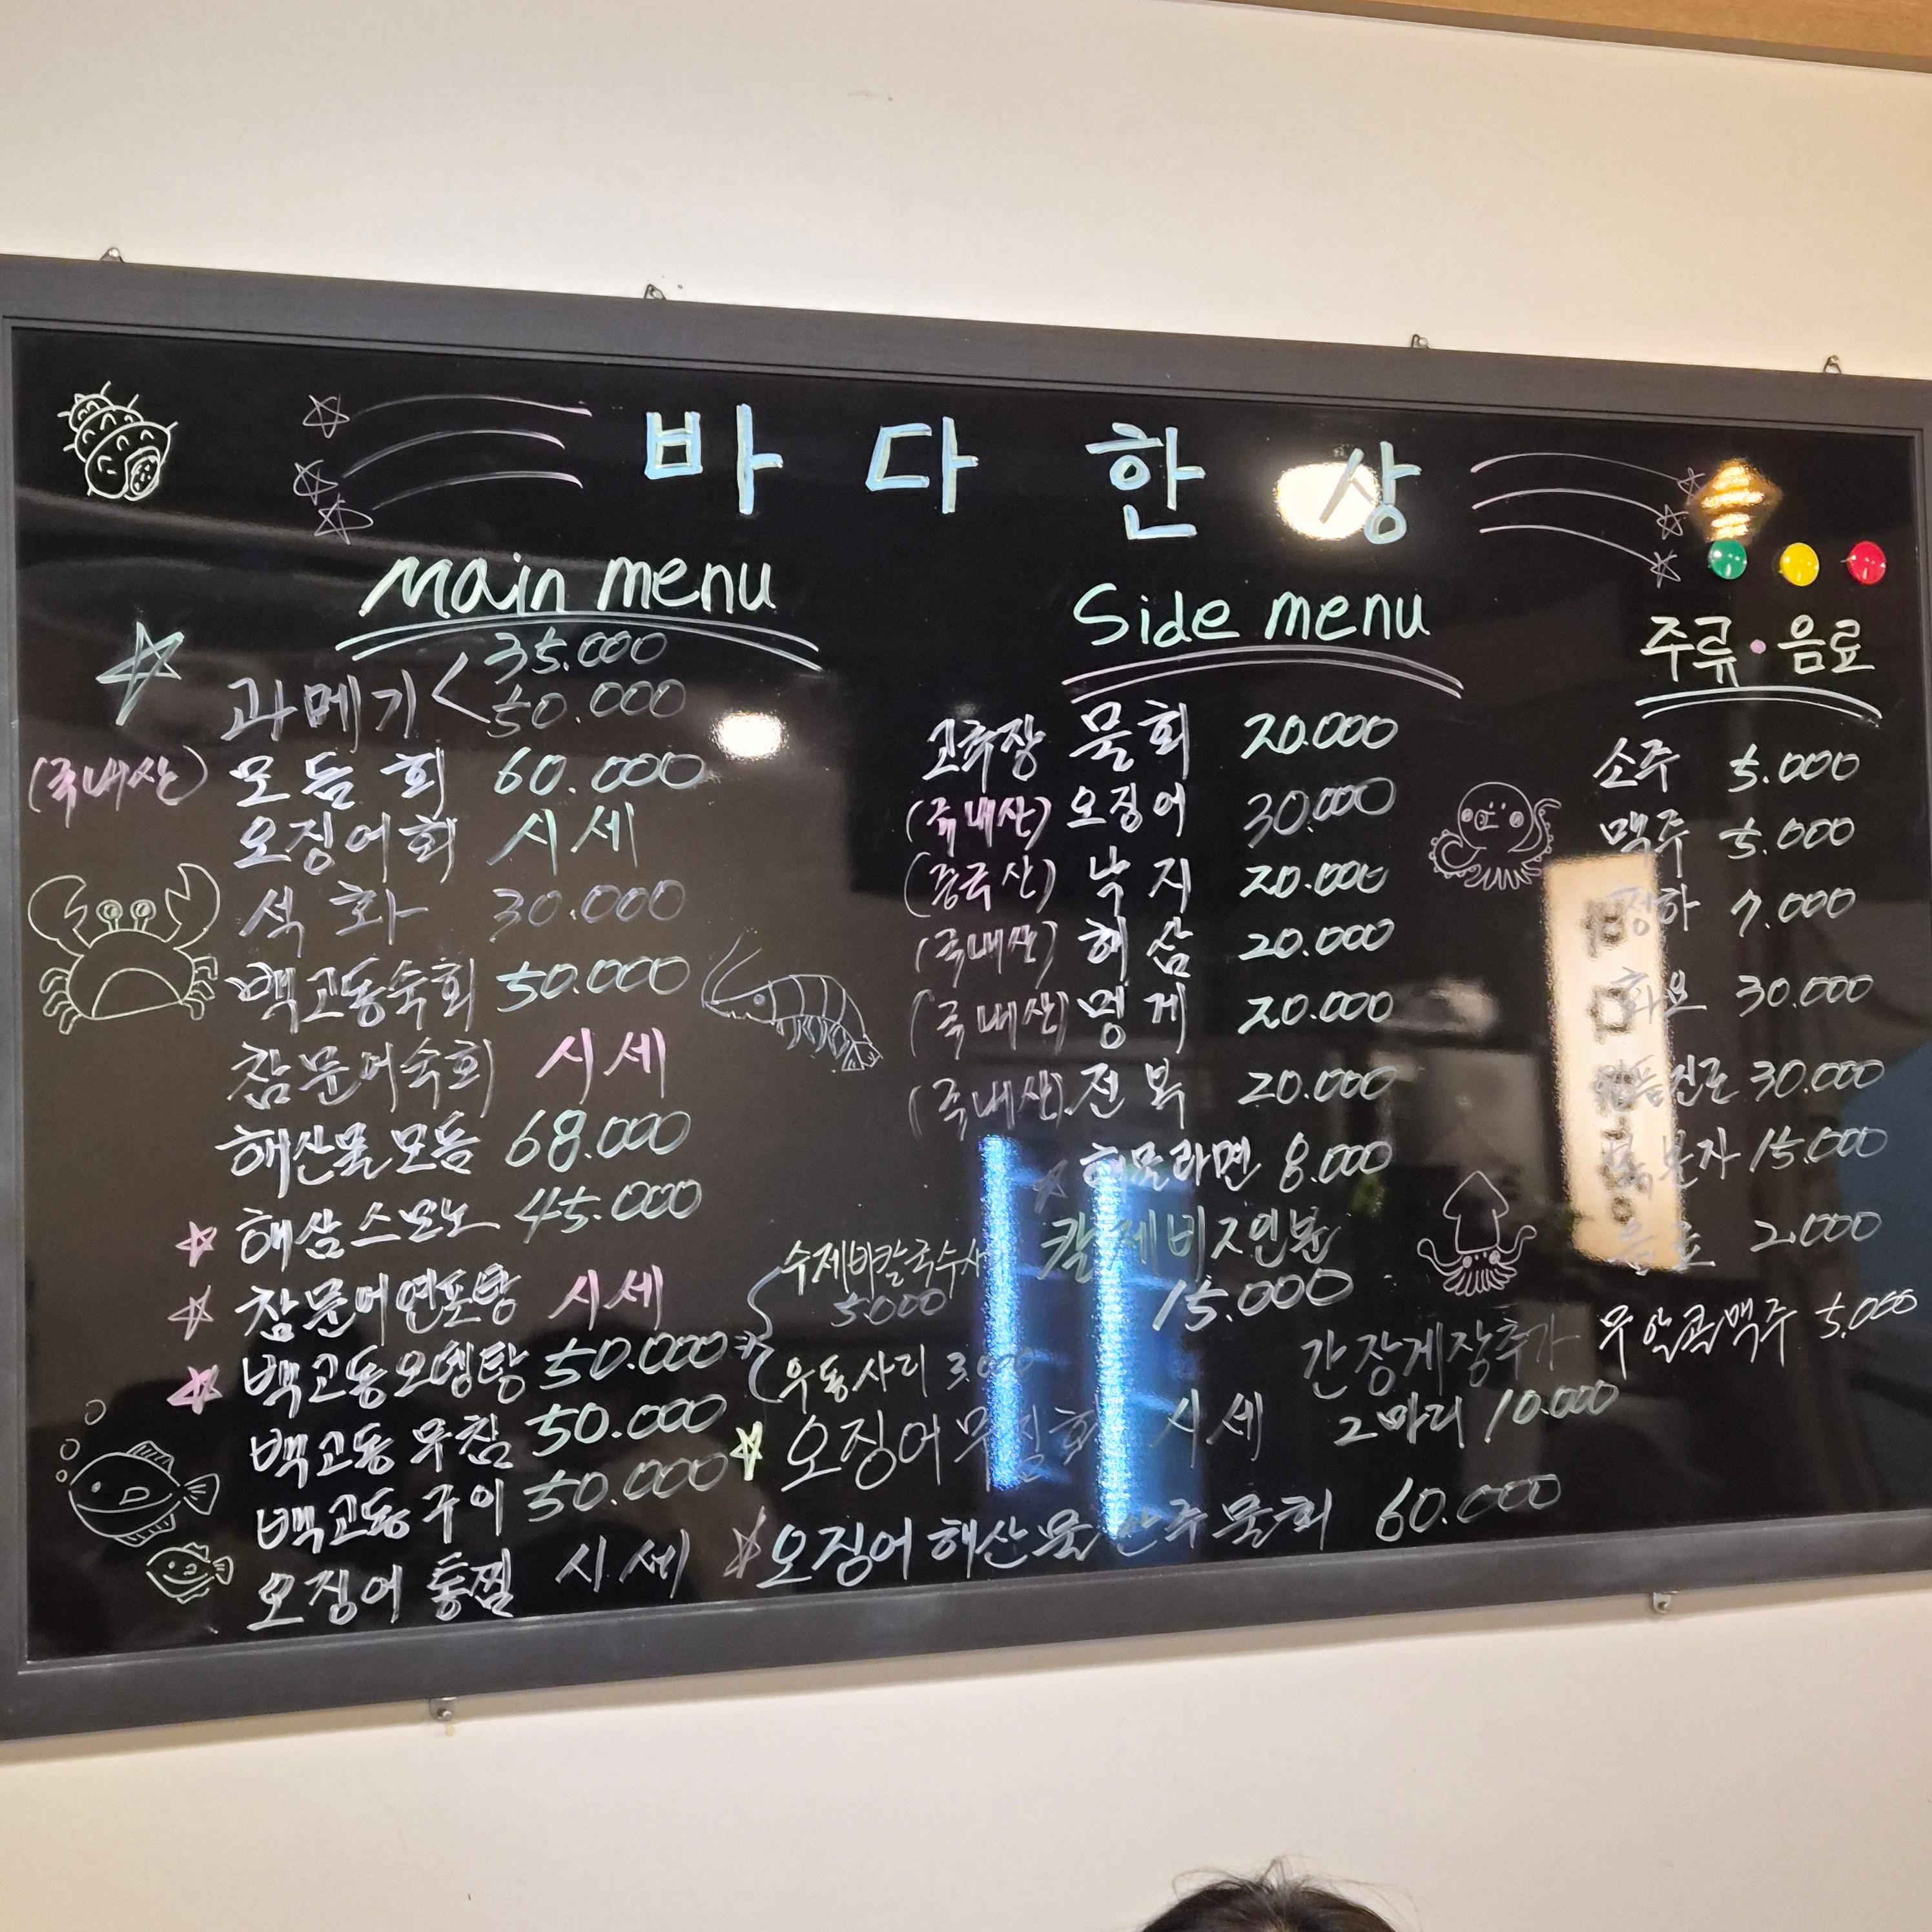 바다한상
Main menu
과메기 < 35.000
50.000
(국내산) 모듬회 60.000
오징어회 시세
석화 30.000
백고동숙회 50.000
참문어숙회 시세
해산물모듬 68.000
해삼스모노 45.000
참문어연포탕 시세
백고동오뎅탕 50.000
수제비칼국수사
5.000
우동사리 3.000
백고동무침 50.000
백고동구이 50.000
오징어 통찜 시세
Side menu
고추장 물회 20.000
(국내산) 오징어 30.000
(중국산) 낙지 20.000
(국내산) 해삼 20.000
(국내산) 멍게 20.000
(국내산) 전복 20.000
해물라면 8.000
칼제비2인분
15.000
간장게장추가
2마리 10.000
오징어 시세
오징어 해산물 안주물회 60.000
주류·음료
소주 5.000
맥주 5.000
청하 7.000
화요 30.000
30.000
복분자 15.000
음료 2.000
무알콜맥주 5.000